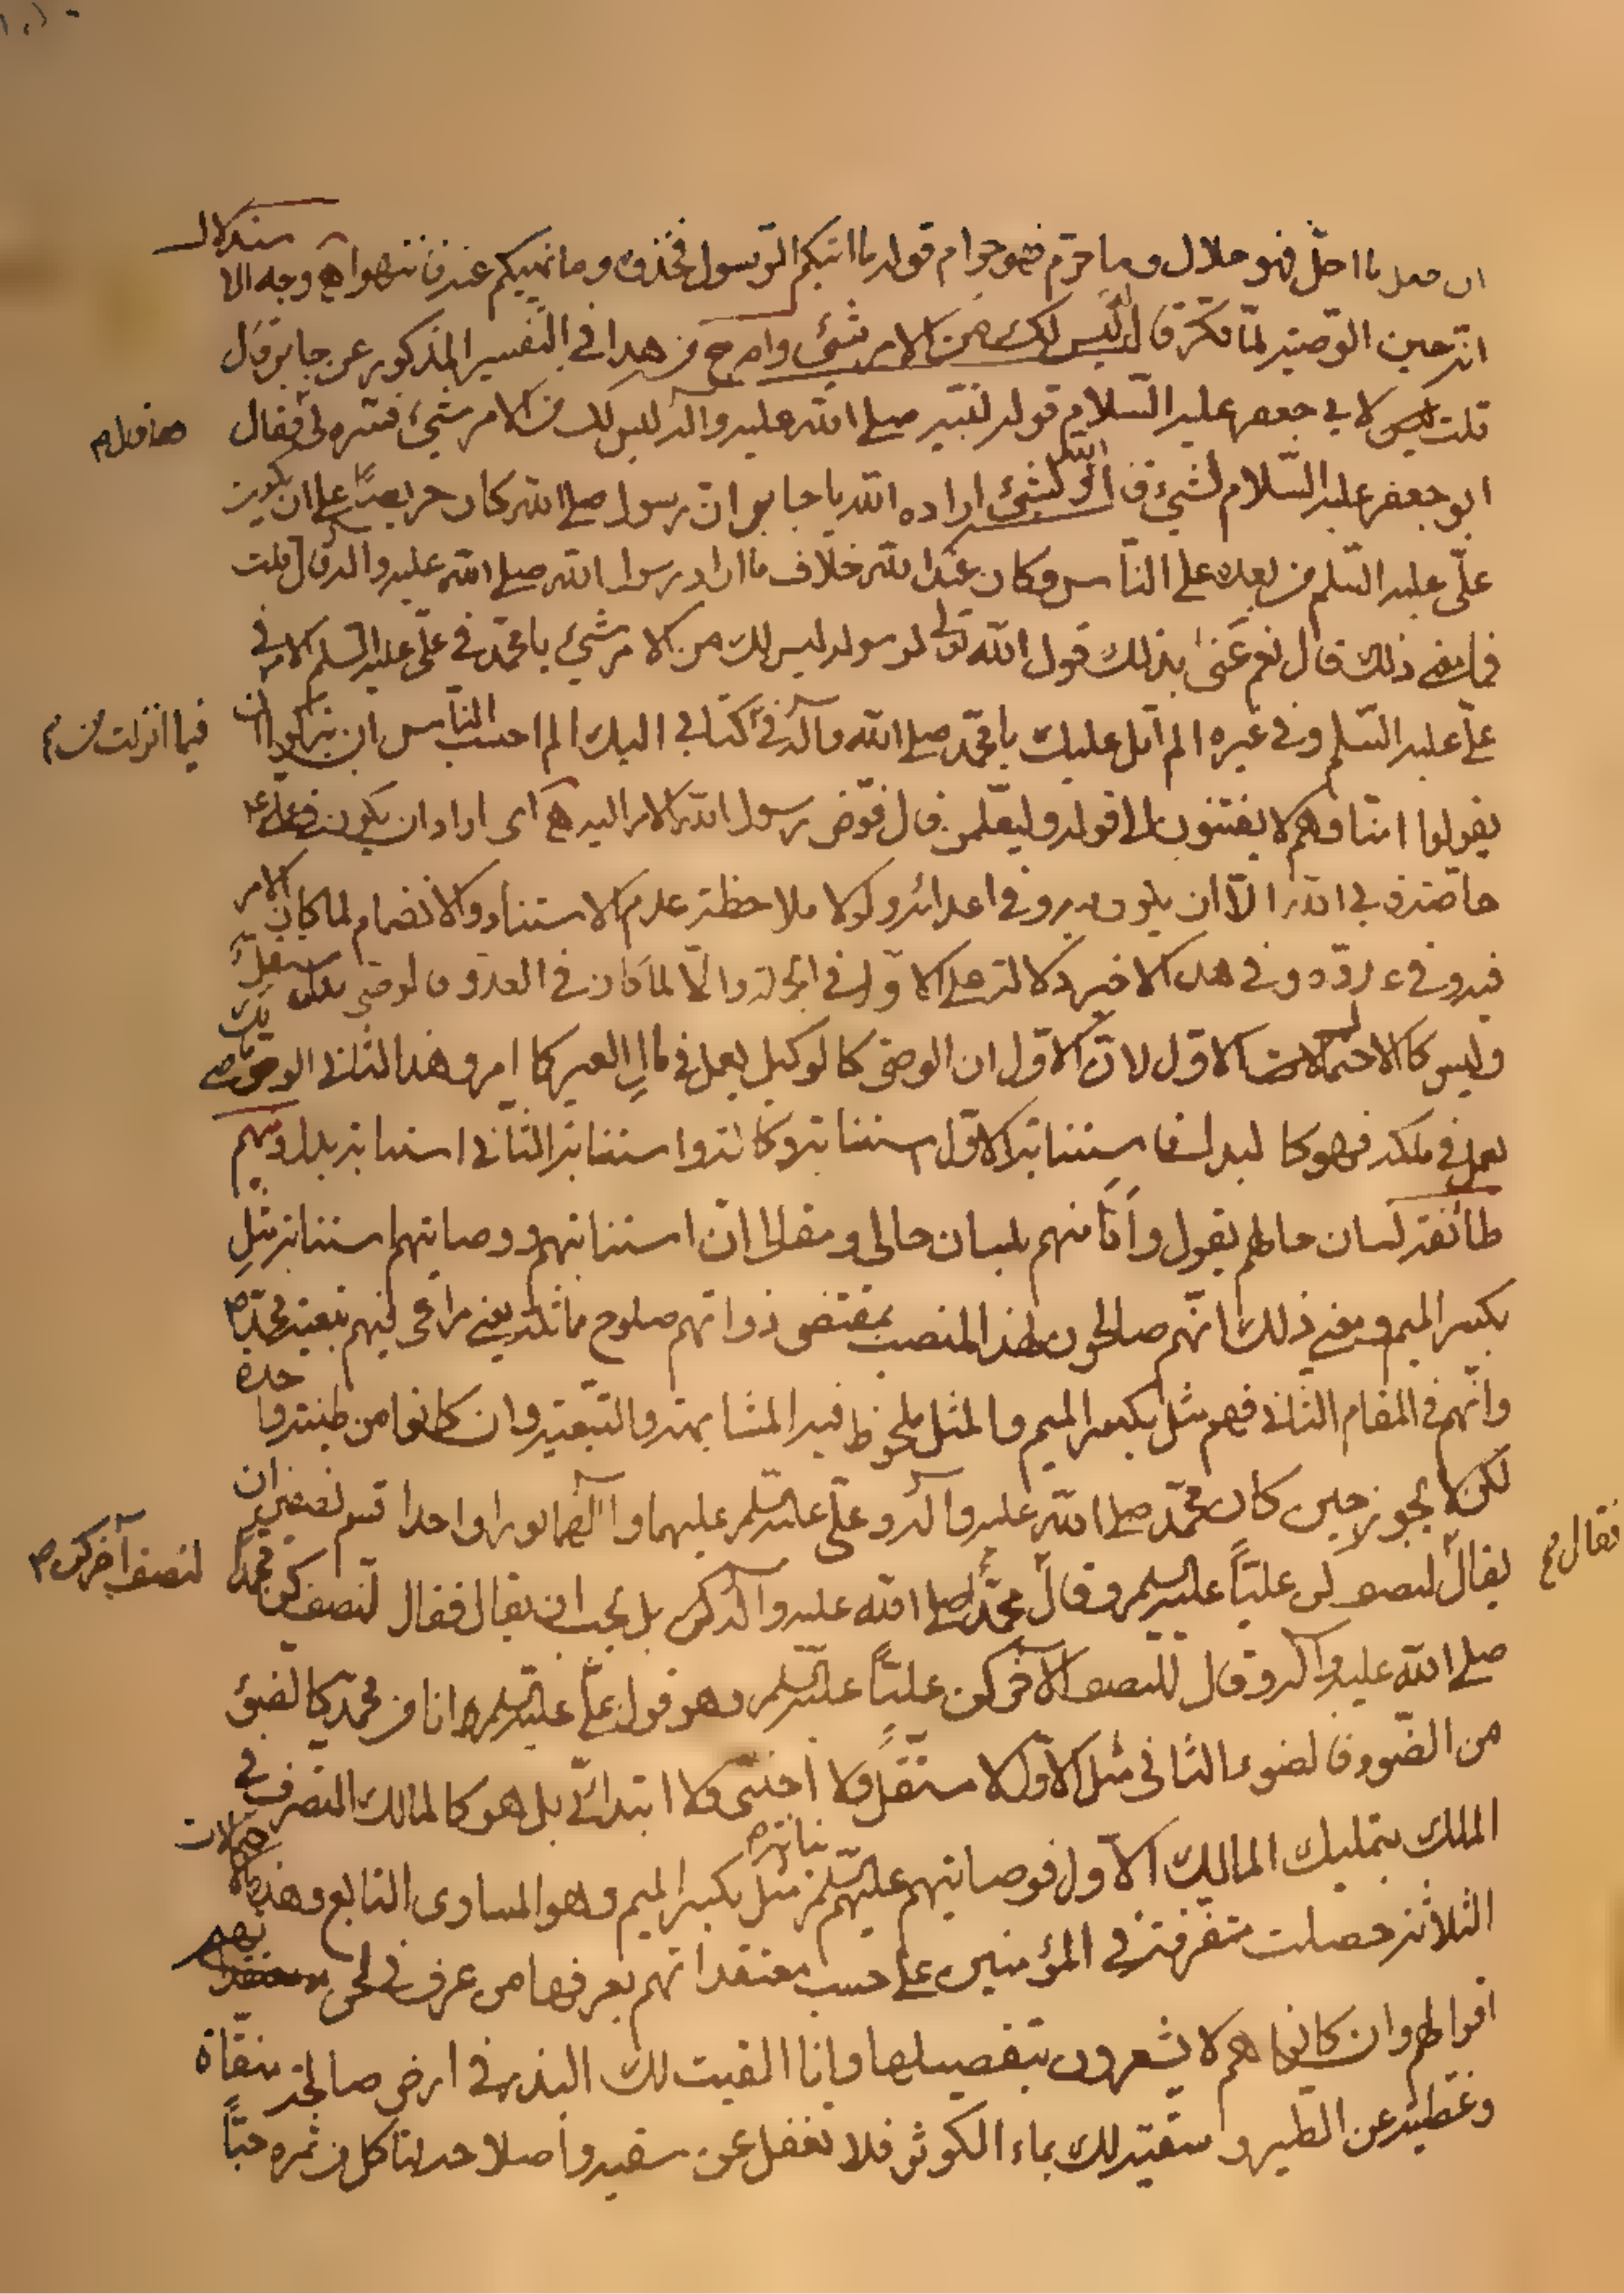 ان جعل ما احل فهو حلال وما حرم فهو حرام قوله ما اتيكم الرسول فخذوه وما نهيكم عنه فانتهوا وجه الا
ستدلال
انه حين الوصية لما فكر قال ليس لك من الامر شيء واصرح من هذا في التفسير المذكور عن جابر قال
قلت لابي جعفر عليه السلام قوله لنبيه صلى الله عليه وآله ليس لك من الامر شيء فسره لي فقال
ابو جعفر عليه السلام لشيء قاله الله ولشيء اراده الله يا جابر ان رسول الله صلى الله كان حريصا على ان يكون
علي عليه السلم من بعده على الناس وكان عند الله خلاف ما اراد رسول الله صلى الله عليه وآله قال قلت
فما معنى ذلك قال نعم عنى بذلك قول الله تعالى لرسوله ليس لك من الامر شيء يا محمد في علي عليه السلم الامر في
علي عليه السلم وفي غيره الم اتل عليك يا محمد صلى الله وآله في كتابي اليك الم احسب الناس ان يتركوا ان
فيما انزلت من
يقولوا امنا وهم لا يفتنون الى قوله وليعلمن قال فوض رسول الله الامر اليه اى اراد ان يكون في علي
خاصة فابى الله الا ان يكون فيه وفي اعدائه ولولا ملاحظة عدم الاستناد والانضمام لما كان الامر
فيه وفي عدوه وفي هذا الاخير دلالة على الاول في الجملة والا لما كان في العدو فالوصي مستقل
وليس كالاحتمالات الاول لان الاول ان الوصي كالوكيل يعمل في مال الغير كما امر وهذا الثاني الوصي
يعمل في ملكه فهو كالبدل فاستنابة الاول استنابة وكالة واستنابة الثاني استنابة بدل ومنهم
طائفة لسان حالهم يقول وانا منهم بلسان حالي ومقالي ان استنابتهم ووصايتهم استنابة مثل
بكسر الميم ومعنى ذلك انهم صالحون لهذا المنصب بمقتضى ذواتهم صلوح مماثلة يعني مراعى فيهم تبعية محمد
وانهم في المقام الثاني فهم مثل بكسر الميم والمثل ملحوظ فيه المشابهة والتبعية وان كانوا من طينة واحدة
لكن لا يجوز حين كان محمد صلى الله عليه وآله وعلي عليه السلم عليهما وآلهما نورا واحدا قسم نصفين ان
فقال
يقال لنصف كن عليا عليه السلم وقال محمد صلى الله عليه وآله كن بل يجب ان يقال فقال لنصف كن محمدا
لنصف آخر كن
صلى الله عليه وآله وقال للنصف الاخر كن عليا عليه السلم وهو قول علي عليه السلم انا من محمد كالضوء
من الضوء فالضوء الثاني مثل الاول لا مستقل ولا اجنبى ولا ابتدائي بل هو كالمالك المتصرف في
الملك بتمليك المالك الاول فوصايتهم عليهم السلم نيابة مثل بكسر الميم وهو المساوى التابع وهذه الاحتمالات
الثلاثة حصلت متفرقة في المؤمنين على حسب معتقداتهم يعرفها من عرف في لحن
اقوالهم وان كانوا هم لا يشعرون بتفصيلها وانا القيت لك البذر في ارض صالحة منقاة
وغطيته عن الطير وسقيته لك بماء الكوثر فلا تغفل عن سقيه واصلاحه لتاكل من ثمره حبا